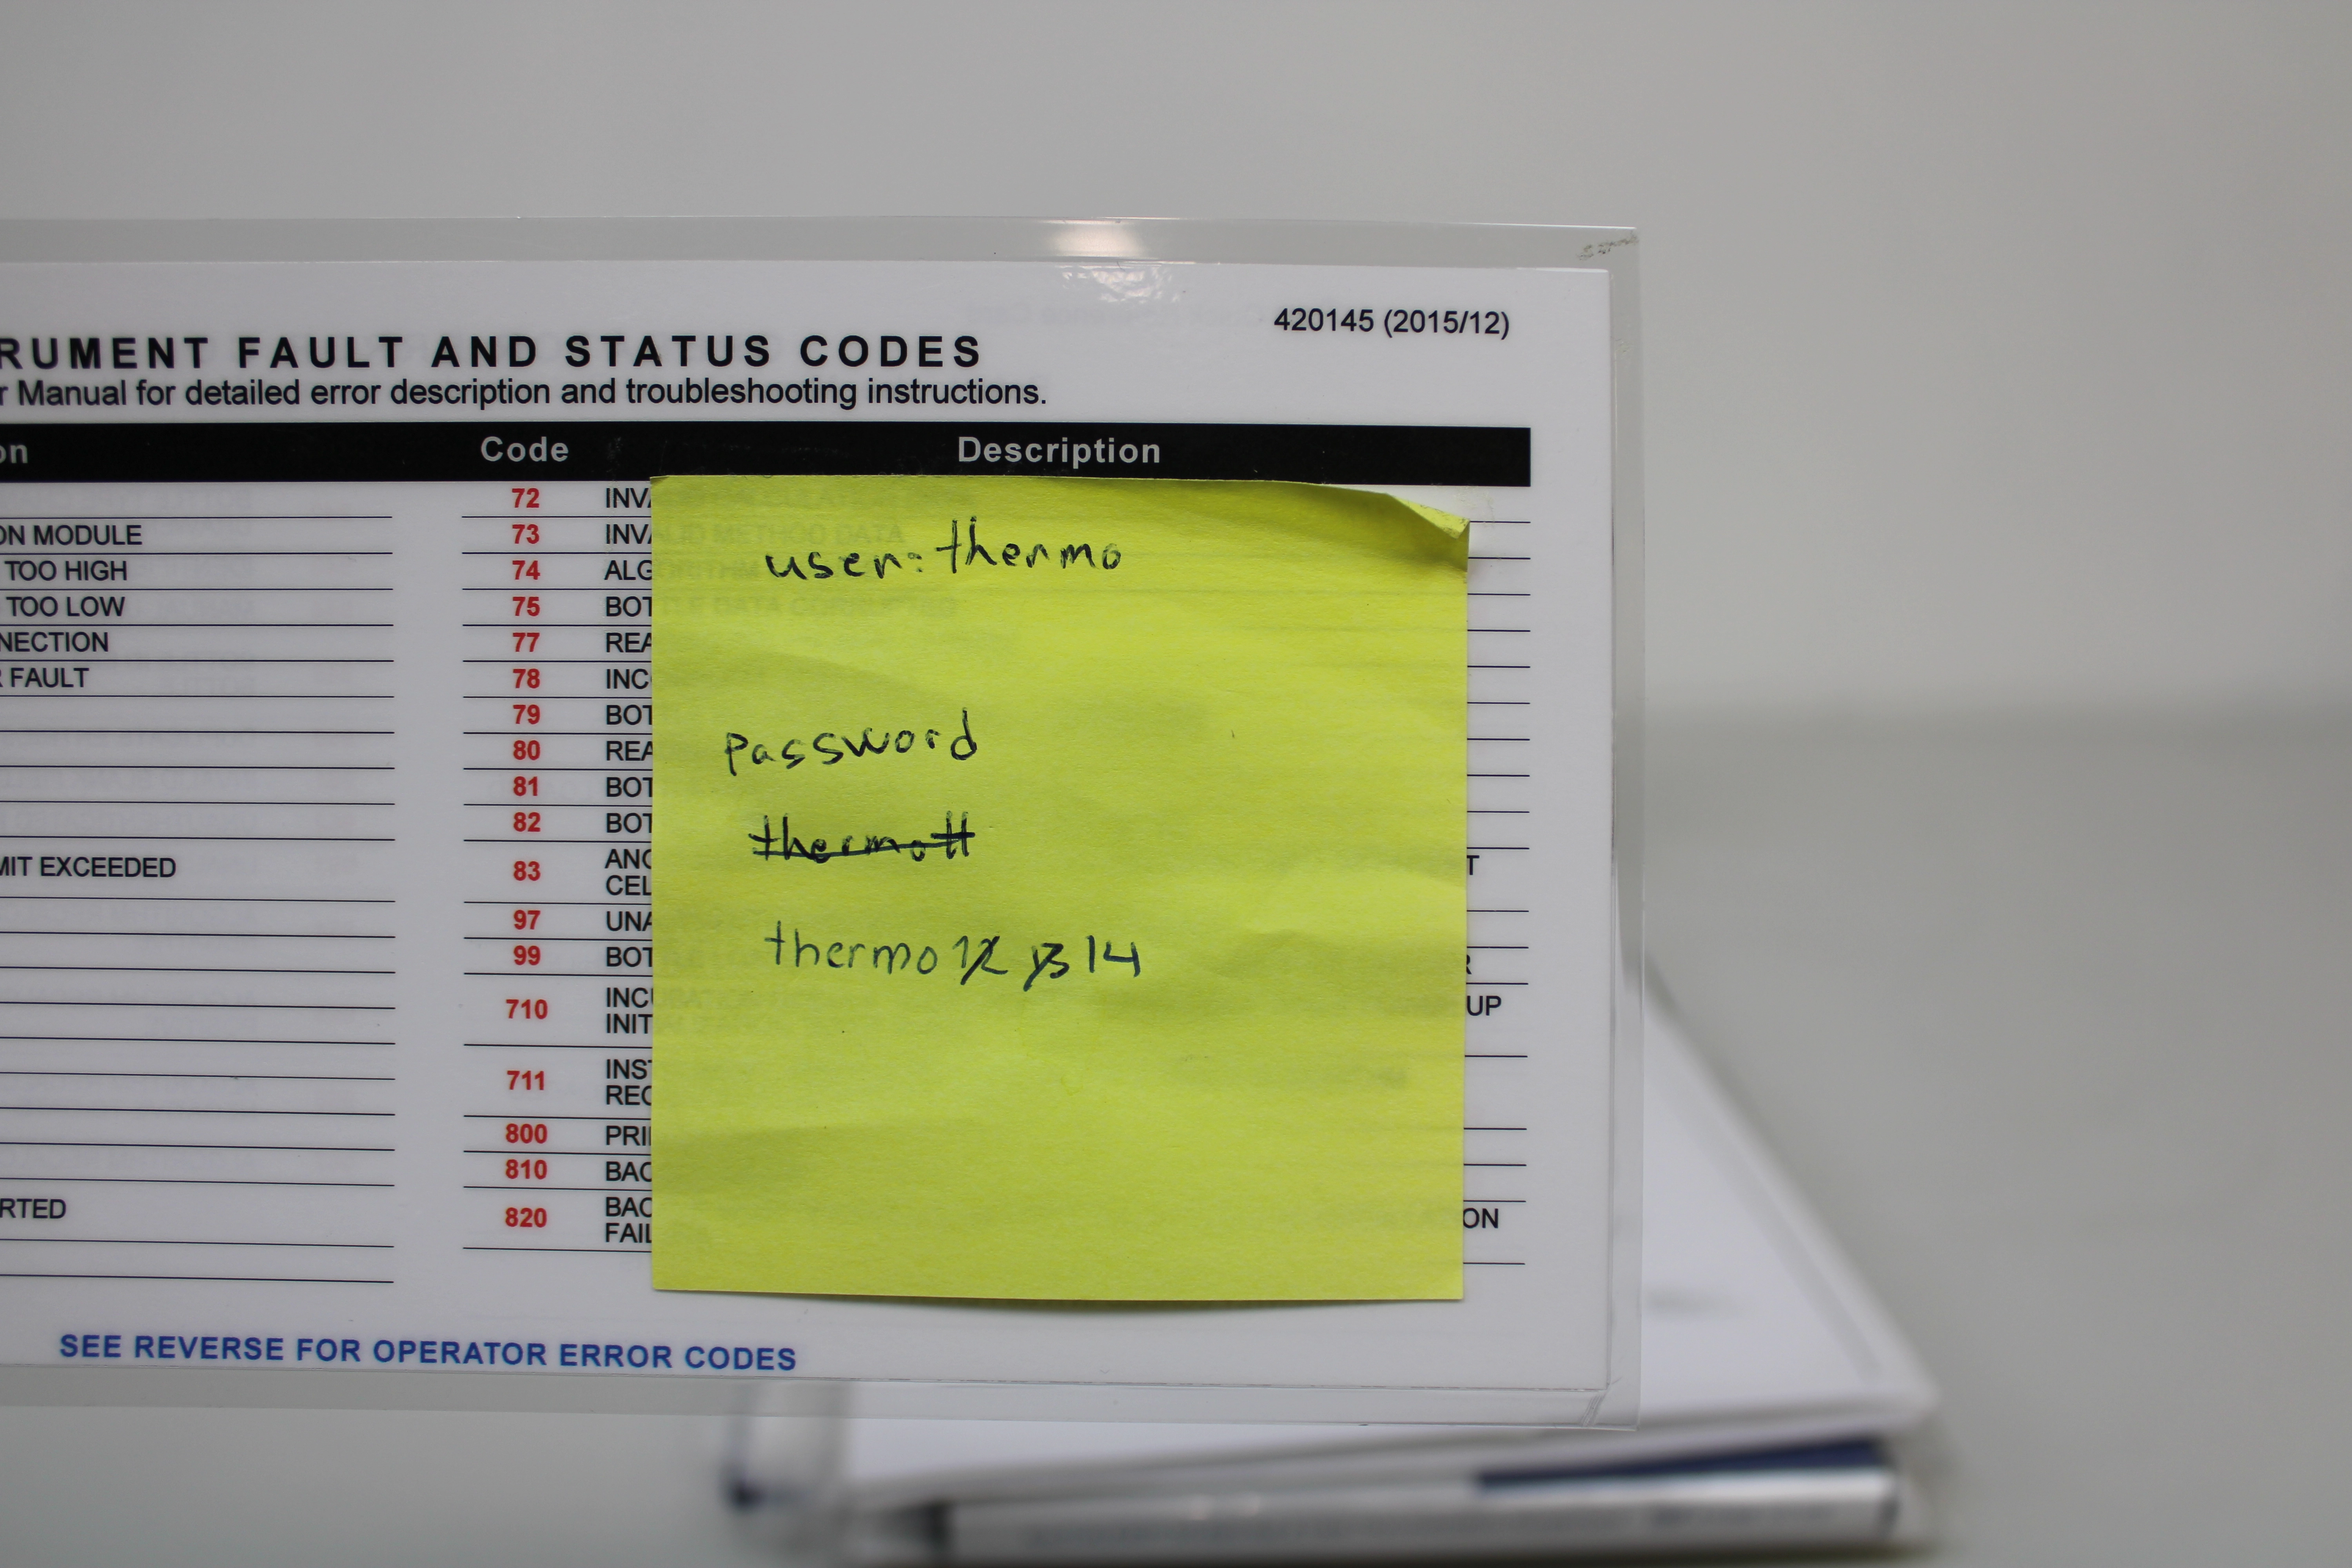 420145 (2015/12)
RUMENT FAULT AND STATUS CODES
r Manual for detailed error description and troubleshooting instructions.
on
ON MODULE
TOO HIGH
TOO LOW
NNECTION
R FAULT
MIT EXCEEDED
RTED
Code Description
72 INVA
73 INVALID METHOD DATA
74 ALGORITHM
75 BOTTLE DATA CORRUPTED
77 REA
78 INC
79 BOT
80 REA
81 BOT
82 BOT
83 ANO T
CEL
97 UNA
99 BOT R
710 INCUBATION UP
INIT
711 INST
REC
800 PRI
810 BAC
820 BAC ON
FAIL
user: thermo
password
thermott
thermo 12 13 14
SEE REVERSE FOR OPERATOR ERROR CODES